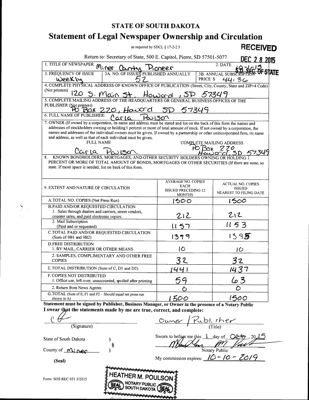 STATE OF SOUTH DAKOTA
Statement of Legal Newspaper Ownership and Circulation
as required by SDCL § 17-2-2.3
RECEIVED
Return to: Secretary of State, 500 E. Capitol, Pierre, SD 57501-5077
DEC 28 2015
1. TITLE OF NEWSPAPER Miner County Pioneer
2. DATE
3. FREQUENCY OF ISSUE Weekly
3A. NO. OF ISSUES PUBLISHED ANNUALLY 52
3B. ANNUAL SUBSCRIPTION PRICE $ 44.36
4. COMPLETE PHYSICAL ADDRESS OF KNOWN OFFICE OF PUBLICATION (Street, City, County, State and ZIP+4 Code) (Not printers)
120 S. Main St. Howard, SD 57349
5. COMPLETE MAILING ADDRESS OF THE HEADQUARTERS OF GENERAL BUSINESS OFFICES OF THE PUBLISHER (Not printers)
PO Box 220, Howard SD 57349
6. FULL NAME OF PUBLISHER: Carla Poulson
7. OWNER (If owned by a corporation, its name and address must be stated and also on the back of this form the names and addresses of stockholders owning or holding 1 percent or more of total amount of stock. If not owned by a corporation, the names and addresses of the individual owners must be given. If owned by a partnership or other unincorporated firm, its name and address, as well as that of each individual must be given.
FULL NAME
COMPLETE MAILING ADDRESS
Carla Poulson
PO Box 220
Howard, SD 57349
8. KNOWN BONDHOLDERS, MORTGAGES, AND OTHER SECURITY HOLDERS OWNING OR HOLDING 1 PERCENT OR MORE OF TOTAL AMOUNT OF BONDS, MORTGAGES OR OTHER SECURITIES (If there are none, so state. If more space is needed, list on back of this form.
9. EXTENT AND NATURE OF CIRCULATION
AVERAGE NO. COPIES EACH ISSUED PRECEDING 12 MONTHS
ACTUAL NO. COPIES ISSUED NEAREST TO FILING DATE
A. TOTAL NO. COPIES (Net Press Run) 1500 1500
B. PAID AND/OR REQUESTED CIRCULATION
1. Sales through dealers and carriers, street vendors, counter sales, and paid electronic copies 212 212
2. Mail Subscription (Paid and or requested) 1157 1153
C. TOTAL PAID AND/OR REQUESTED CIRCULATION (Sum of 9B1 and 9B2) 1399 1395
D. FREE DISTRIBUTION
1. BY MAIL, CARRIER OR OTHER MEANS 10 10
2. SAMPLES, COMPLIMENTARY AND OTHER FREE COPIES 32 32
E. TOTAL DISTRIBUTION (Sum of C, D1 and D2) 1441 1437
F. COPIES NOT DISTRIBUTED
1. Office use, left over, unaccounted, spoiled after printing 59 63
2. Return from News Agents 0 0
G. TOTAL (Sum of E, F1 and F2 - Should equal net press run shown in A) 1500 1500
Statement must be signed by Publisher, Business Manager, or Owner in the presence of a Notary Public
I swear that the statements made by me are true, correct, and complete:
Owner/Publisher
(Signature)
(Title)
State of South Dakota )
Sworn to before me this 1 day of Oct, 2015
County of Miner )
Notary Public
(Seal)
My commission expires: 10-10-2019
HEATHER M. POULSON
NOTARY PUBLIC
SOUTH DAKOTA
SEAL
SEAL
Form: SOS REC 051 3/2015